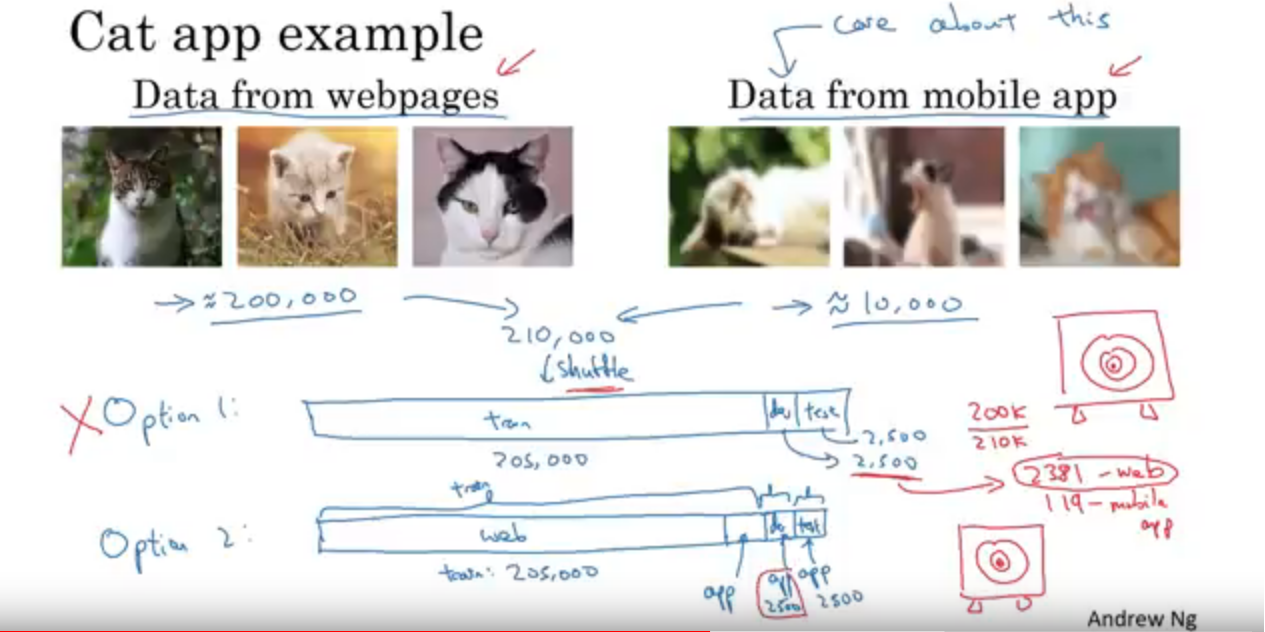 Cat app example
care about this
Data from webpages
Data from mobile app
→ ≈200,000
→ ≈ 10,000
210,000
↓ shuffle
X Option 1:
train
dev
test
205,000
2,500
2,500
200K
210K
2381 - web
119 - mobile
app
train
Option 2:
web
dev
test
train: 205,000
app
app
2500
app
2500
Andrew Ng